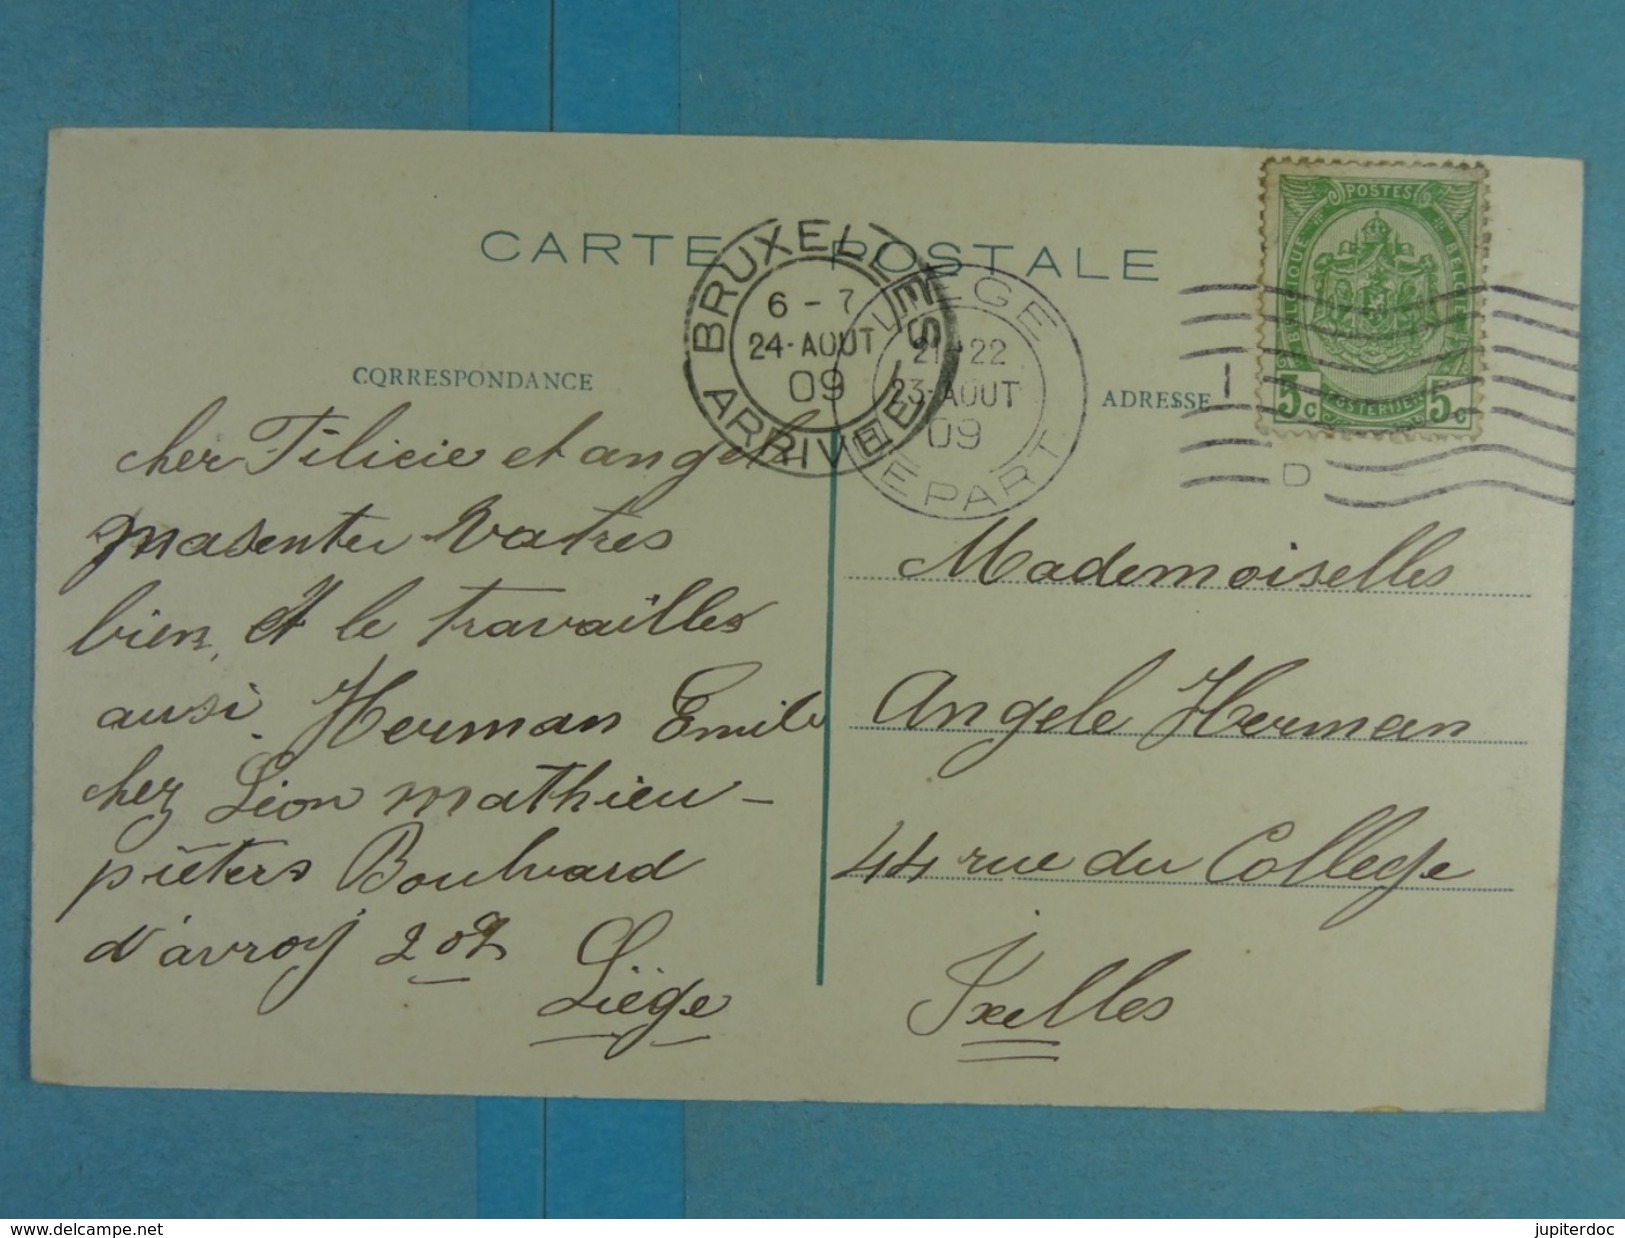 CARTE POSTALE
BRUXELLES
6 - 7
24 - AOUT
09
ARRIVÉE
LIEGE
21-22
23-AOUT
09
DEPART
POSTES
BELGIQUE
BELGIE
5c
POSTERIJEN
5c
I
D
CORRESPONDANCE
ADRESSE
cher Filicie et angel
masenter vatres
bien, et le travailles
ausi. Herman Emile
chez Léon mathieu-
piéters Boulvard
d'avroy 202
Liége
Mademoiselles
Angele Herman
44 rue du College
Ixelles
https://www.delcampe.net
jupiterdoc